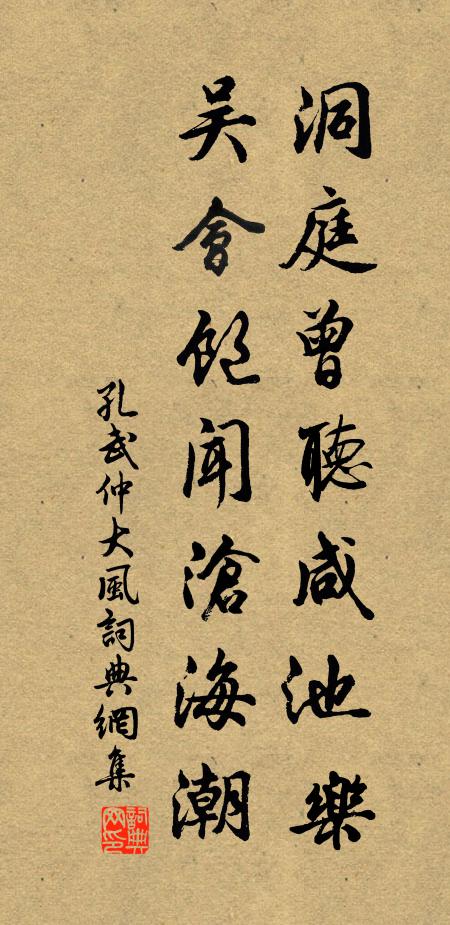 洞庭曾聽咸池樂
吳會飽聞滄海潮
孔武仲大風詞典網集
詞典網印